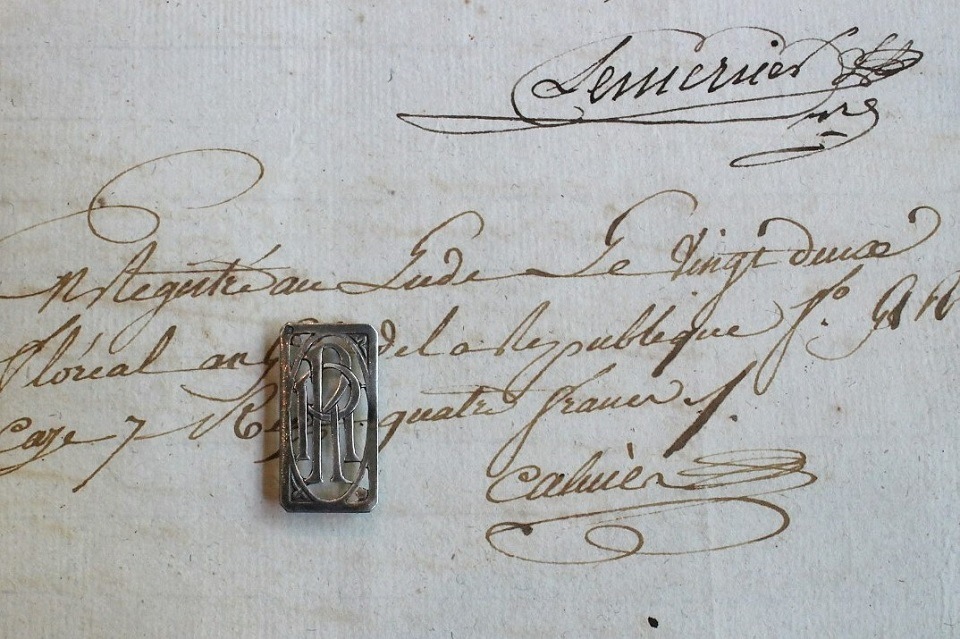 Lemercier
nre
Enregistré au Lude Le Vingt deux
floréal an de la Republique f.o 98 R
Caze 7 Reçu quatre francs /.
Cahier